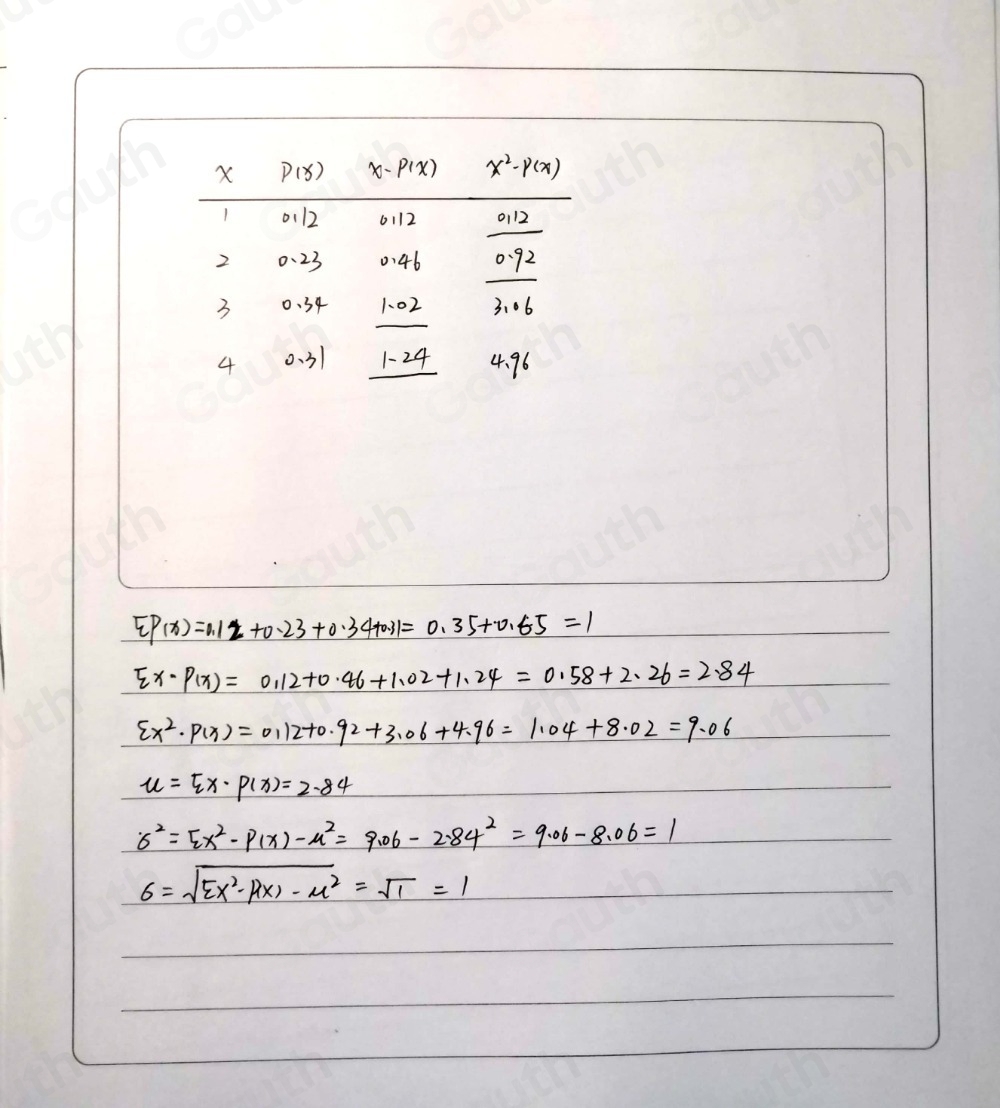 x P(x) x·P(x) x²·P(x)
1 0.12 0.12 0.12
2 0.23 0.46 0.92
3 0.34 1.02 3.06
4 0.31 1.24 4.96
ΣP(x)=0.12+0.23+0.34+0.31= 0.35+0.65 =1
Σx·P(x)= 0.12+0.46+1.02+1.24 = 0.58+2.26=2.84
Σx²·P(x)=0.12+0.92+3.06+4.96= 1.04+8.02=9.06
u=Σx·P(x)=2.84
σ²=Σx²·P(x)-u²= 9.06-2.84² =9.06-8.06=1
σ=√Σx²·P(x)-u² =√1 =1
Gauth